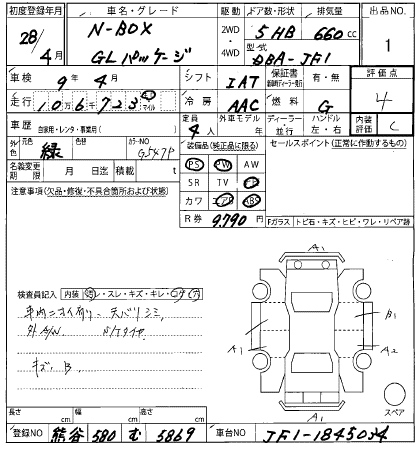 初度登録年月 車名・グレード 駆動 ドア数・形状 排気量 出品NO
28/4月 N-BOX 2WD・4WD 5 HB 660cc 1
GLパッケージ 型式 DBA-JF1
車検 9年4月 シフト IAT 保証書 有・無 評価点
走行 10万6千723 km マイル 冷房 AAC 燃料 G 4
車歴 自家用・レンタ・事業用( ) 定員 4人 外車モデル 年 ディーラー・並行 ハンドル 左・右 内装評価 C
外色 元色 緑 色替 カラーNO G547P 装備品(純正品に限る) セールスポイント(正常に作動するもの)
名義変更期限 月 日迄 積載 t PS PW AW
注意事項(欠品・修復・不具合箇所および状態) SR TV
カワ エアB ABS
R券 9,790円 Fガラス トビ石・キズ・ヒビ・ワレ・リペア跡
A1
検査員記入 内装 汚・スレ・キズ・キレ・コゲ・穴
車内ニオイ有り 天バリシミ B1
外A/N S/Tタイヤ
A1 A2
キズ、B
スペア
A1
長さ cm 幅 cm 高さ cm
登録NO 熊谷 580 む 5869 車台NO JF1-1845034